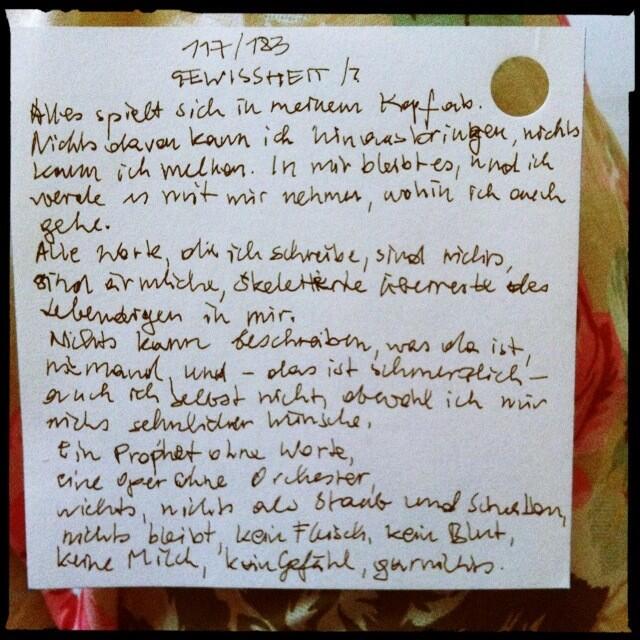 117/183
GEWISSHEIT /2
Alles spielt sich in meinem Kopf ab.
Nichts davon kann ich hinausbringen, nichts
kann ich melken. In mir bleibt es, und ich
werde es mit mir nehmen, wohin ich auch
gehe.
Alle Worte, die ich schreibe, sind nichts,
sind ärmliche, skelettierte Überreste des
Lebendigen in mir.
Nichts kann beschreiben, was da ist,
niemand und – das ist schmerzlich –
auch ich selbst nicht, obwohl ich mir
nichts sehnlicher wünsche.
Ein Prophet ohne Worte,
eine Oper ohne Orchester,
nichts, nichts als Staub und Schatten,
nichts bleibt, kein Fleisch, kein Blut,
keine Milch, kein Gefühl, gar nichts.